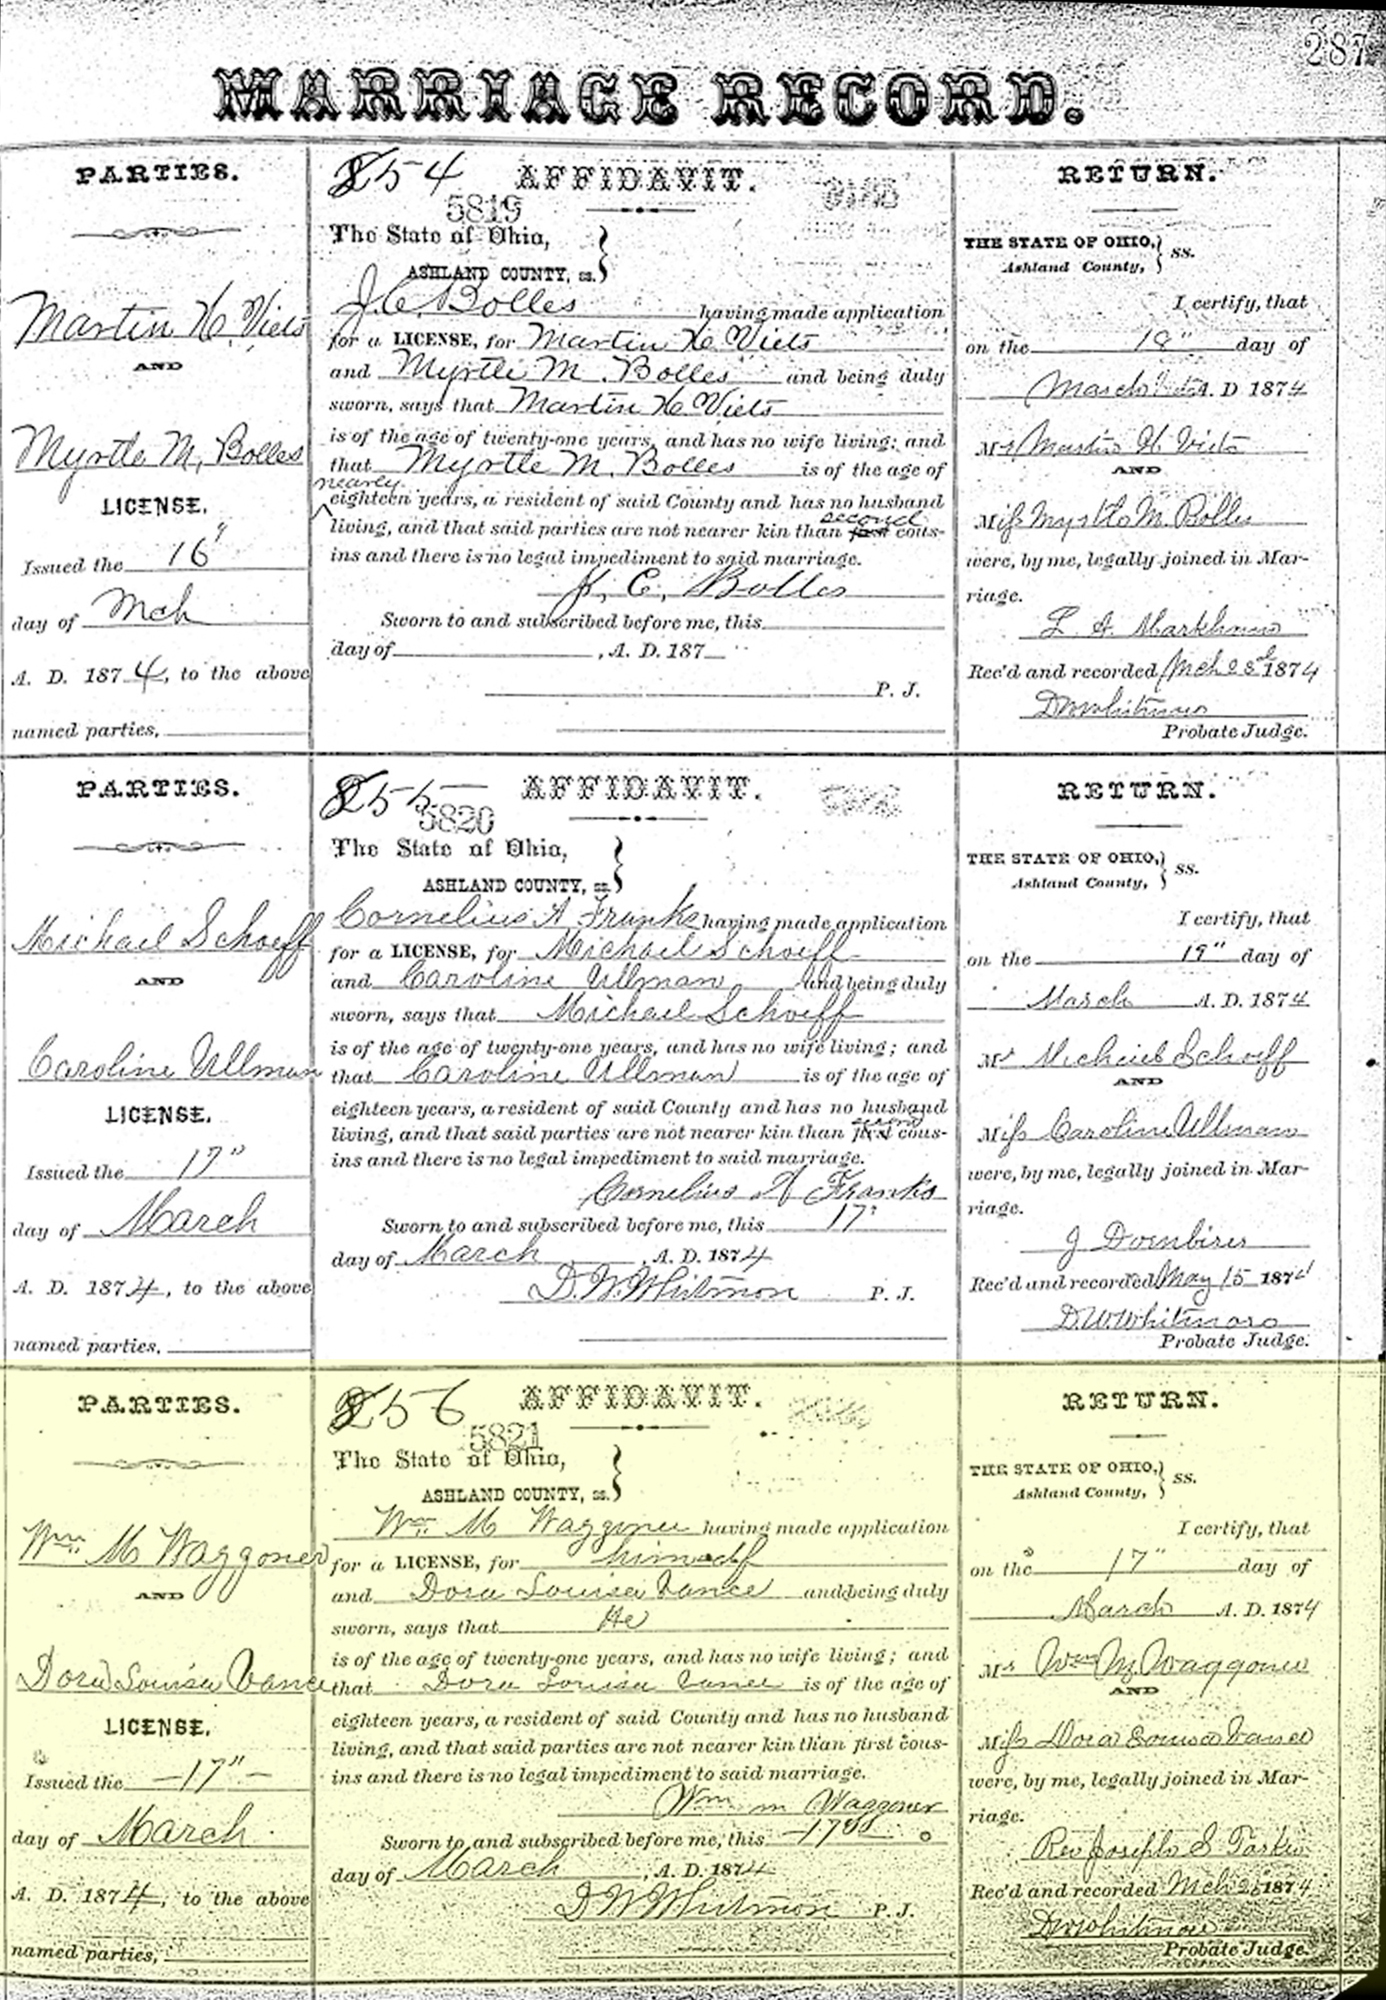 287
MARRIAGE RECORD.
PARTIES.
Martin H. Viets
AND
Myrtle M. Bolles
LICENSE.
Issued the 16"
day of Mch
A. D. 1874, to the above
named parties,
254 AFFIDAVIT.
5819
The State of Ohio,
ASHLAND COUNTY, ss.
J. C. Bolles having made application
for a LICENSE, for Martin H. Viets
and Myrtle M. Bolles and being duly
sworn, says that Martin H. Viets
is of the age of twenty-one years, and has no wife living; and
that Myrtle M. Bolles is of the age of
nearly
eighteen years, a resident of said County and has no husband
second
living, and that said parties are not nearer kin than first cous-
ins and there is no legal impediment to said marriage.
J. C. Bolles
Sworn to and subscribed before me, this
day of , A. D. 187
P. J.
RETURN.
THE STATE OF OHIO, ss.
Ashland County,
I certify, that
on the 18" day of
March A. D 1874
Mr Martin H. Viets
AND
Miss Myrtle M. Bolles
were, by me, legally joined in Mar-
riage.
L. A.
Rec'd and recorded Mch 1874
D W Whitmore
Probate Judge.
PARTIES.
Michael Schoeff
AND
Caroline Ullman
LICENSE.
Issued the 17"
day of March
A. D. 1874, to the above
named parties,
255 AFFIDAVIT.
5820
The State of Ohio,
ASHLAND COUNTY, ss.
Cornelius A Franks having made application
for a LICENSE, for Michael Schoeff
and Caroline Ullman and being duly
sworn, says that Michael Schoeff
is of the age of twenty-one years, and has no wife living; and
that Caroline Ullman is of the age of
eighteen years, a resident of said County and has no husband
second
living, and that said parties are not nearer kin than first cous-
ins and there is no legal impediment to said marriage.
Cornelius A Franks
Sworn to and subscribed before me, this 17"
day of March , A. D. 1874
D. W. Whitmore P. J.
RETURN.
THE STATE OF OHIO, ss.
Ashland County,
I certify, that
on the 19" day of
March A. D. 1874
Mr Michael Schoeff
AND
Miss Caroline Ullman
were, by me, legally joined in Mar-
riage.
J
Rec'd and recorded May 15 1874
D. W. Whitmore
Probate Judge.
PARTIES.
Wm. M Waggoner
AND
Dora Louisa Vance
LICENSE.
Issued the -17"-
day of March
A. D. 1874, to the above
named parties,
256 AFFIDAVIT.
5821
The State of Ohio,
ASHLAND COUNTY, ss.
Wm. M Waggoner having made application
for a LICENSE, for himself
and Dora Louisa Vance and being duly
sworn, says that He
is of the age of twenty-one years, and has no wife living; and
that Dora Louisa Vance is of the age of
eighteen years, a resident of said County and has no husband
living, and that said parties are not nearer kin than first cous-
ins and there is no legal impediment to said marriage.
Wm M Waggoner
Sworn to and subscribed before me, this -17th
day of March , A. D. 1874
D W Whitmore P. J.
RETURN.
THE STATE OF OHIO, ss.
Ashland County,
I certify, that
on the 17" day of
March A. D. 1874
Mr Wm M Waggoner
AND
Miss Dora Louisa Vance
were, by me, legally joined in Mar-
riage.
Rev Joseph S
Rec'd and recorded Mch 1874
D W Whitmore
Probate Judge.